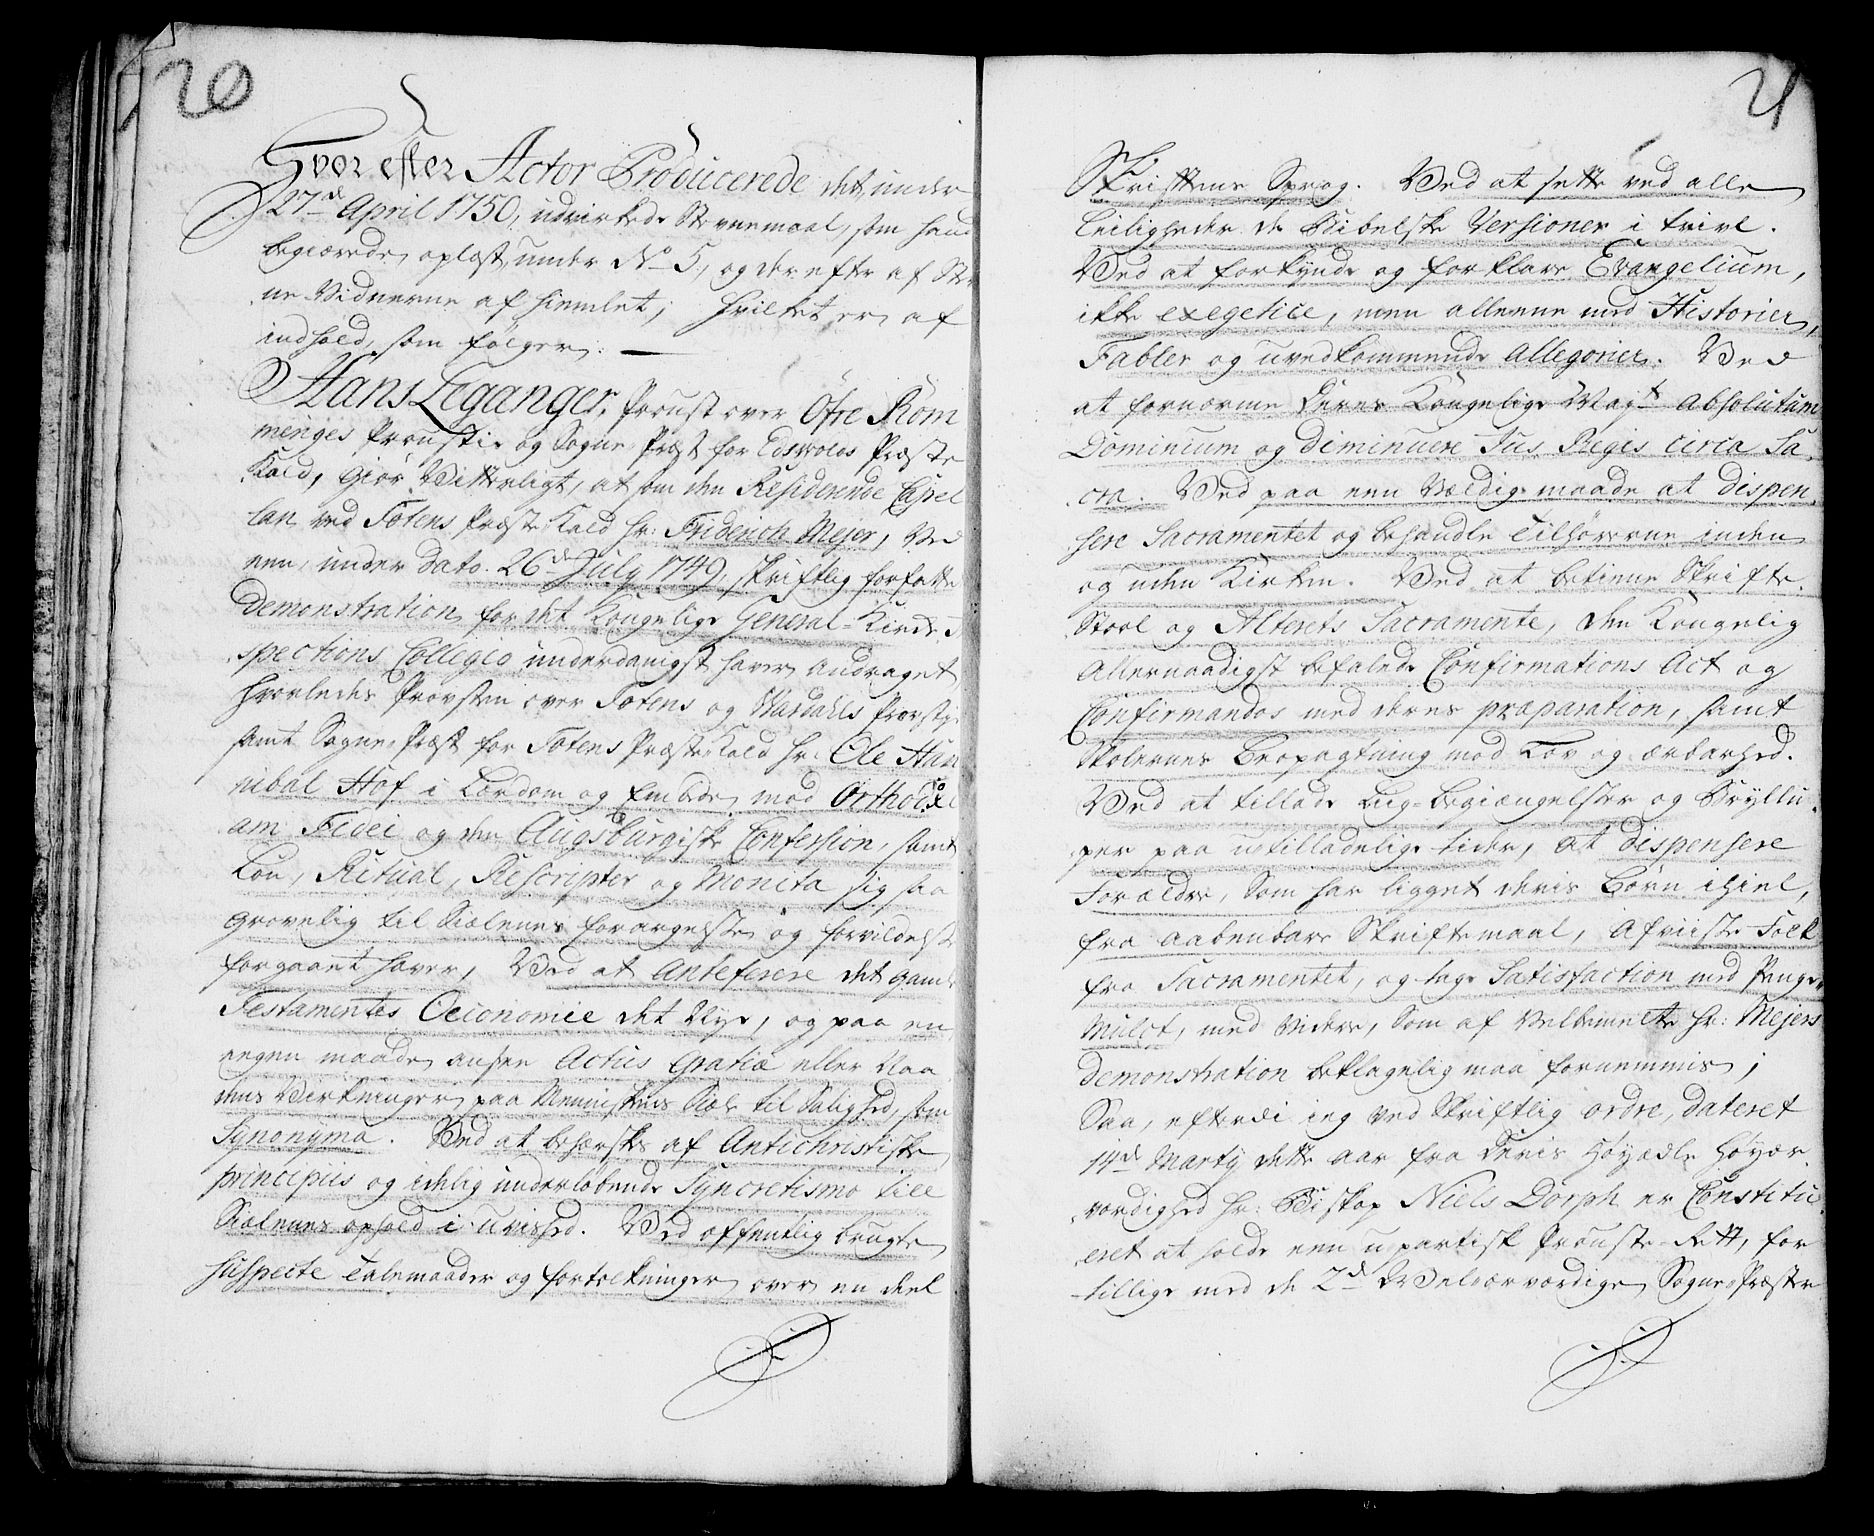 20
Hvor efter Actor Producerede det under
27de April 1750, udvirkede Stevnemaal, som hand
begiærede oplæst, under No 5, og derefter af Stev
ne-Vidnerne afhiemlet; Hvilket er af
indhold, som følger:
Hans Leganger, Proust over Øfre Rom
meriges Proustie og Sogne Præst for Edsvolds Præste
Kald, Giør Vitterligt, at som den Residerende Capel
lan ved Totens Præste Kald Hr: Friderich Mejer, Ved
een, under dato 26de July 1749, skriftlig forfatte
demonstration for det Kongelige General-Kirke-In
spections Collegio underdanigst haver andraget
hvorledes Provsten over Totens og Wardahls Provstie
samt Sogne-Præst for Totens Præste Kald Hr: Ole Han
nibal Hof i Lærdom og Embede mod Orthodoxi
am Fidei og den Augsburgiske Confession, samt
Lov, Ritual, Rescripter og Monita sig saa
grovelig til Siælenes forargelse og forvildelse
forgaaet haver, Ved at Anteferere det gamle
Testamentes Oeconomie det Nye, og paa en
egen maade ansee Actus Gratiæ eller Naa
dens Virkninger paa Menniskens Siæl til Salighed, som
Synonyma. Ved at beherskes af Antichristiske
principiis og idelig underløbende Syncretismo till
Siælenes ophold i uvished. Ved offentlig brugte
suspecte Talemaader og fortolkninger over en deel
21
Skriftens Sprog. Ved at sette ved alle
Leiligheder de Bibelske Versioner i tvivl.
Ved at forkynde og forklare Evangelium,
ikke exegetice, men alleene med Historier,
Fabler og uvedkommende Allegorier. Ved
at fornærme Deres Kongelige Mayts Absolutum
Dominium og diminuere Jus Regis circa Sa
cra. Ved paa een Vældig maade at dispen
sere Sacramentet og behandle Tilhørerne inden
og uden Kirken. Ved at betiene Skrifte
Stoel og Alterets Sacramente, den Kongelig
Allernaadigst befalede Confirmations Act og
Confirmandos med deres præparation, samt
Skolernes Beopagtning mod Lov og ærbarhed.
Ved at tillade Liig-Begiængelser og Bryllu
per paa utilladelige tider, at dispensere
Forældre, som har ligget deris Børn ihiel,
fra aabenbare Skriftemaal, Afviiste Folk
fra Sacramentet, og tage Satisfaction med Penge
Mulct, med videre, som af Velbemelte Hr: Mejers
demonstration beklagelig maa fornemmis;
Saa, efterdi ieg ved Skriftlig ordre, dateret
14de Marty dette aar fra Deris Høyædle Høyær
værdighed Hr: Biskop Niels Dorph er Constitu
eret at holde een upartisk Prouste-Rett, for
tillige med de 2de Velærværdige Sogne-Præster